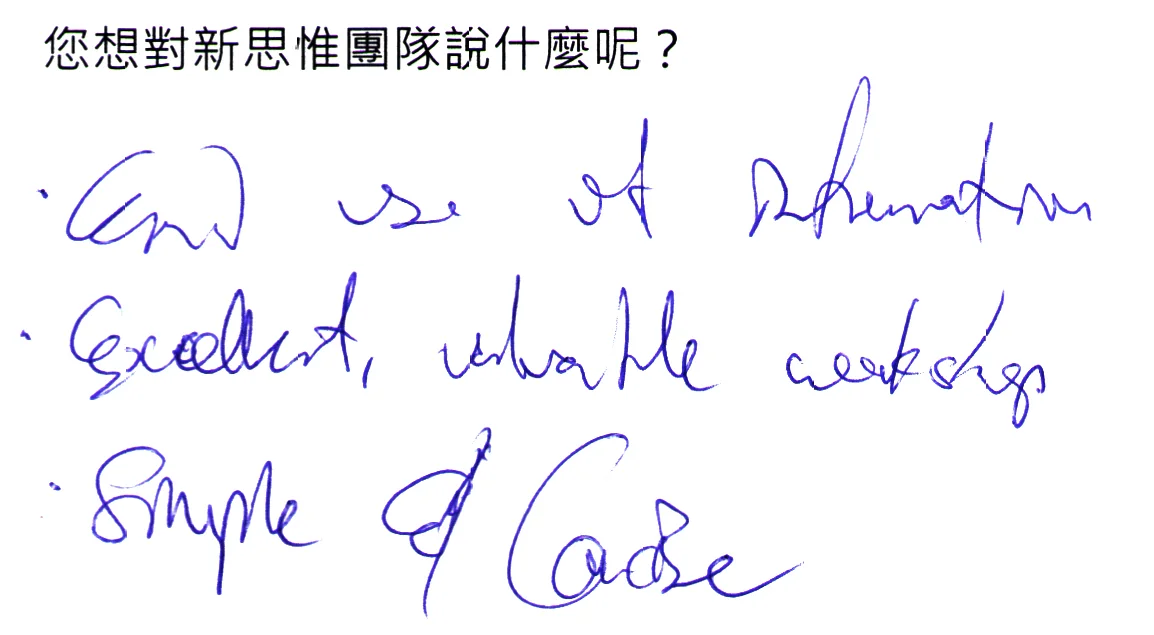 您想對新思惟團隊說什麼呢？
· Good use of information
· Excellent, valuable workshop
· Simple & Concise